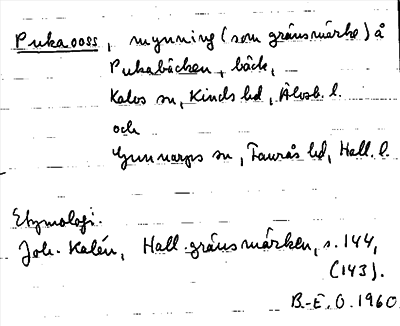 Pukaooss, mynning (som gränsmärke) å
Pukabäcken, bäck,
Kalvs sn, Kinds hd, Älvsb. l.
och
Gunnarps sn, Faurås hd, Hall. l.
Etymologi.
Joh. Kalén, Hall. gränsmärken, s. 144,
(143).
B-E. O. 1960